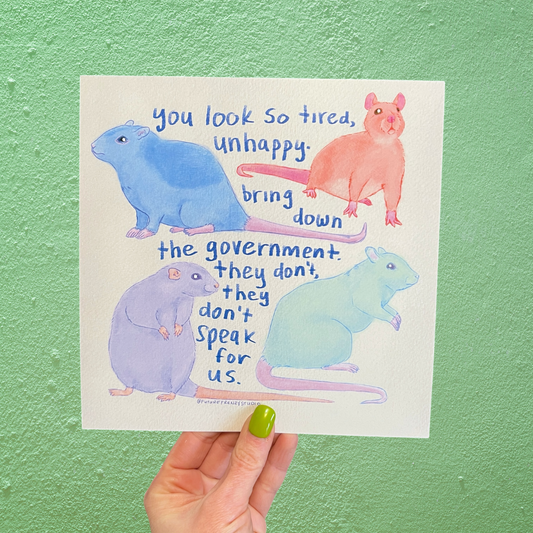 you look so tired,
unhappy.
bring
down
the government.
they don't,
they
don't
speak
for
us.